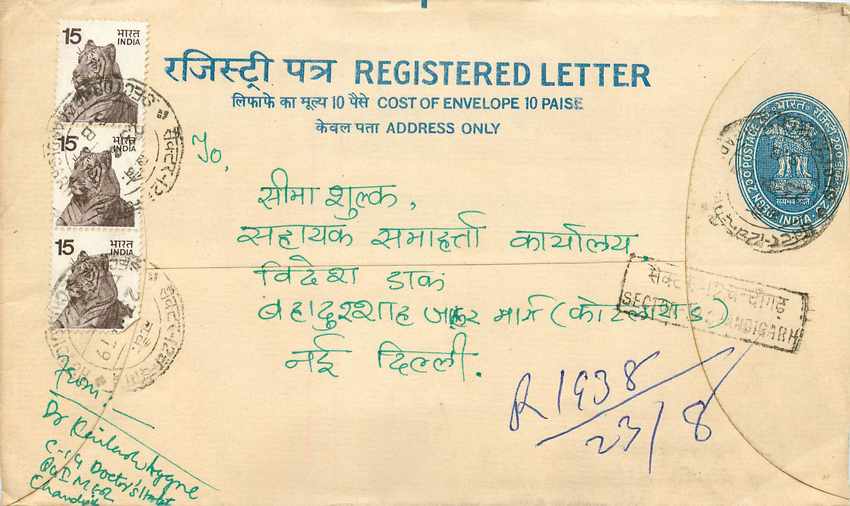 15 भारत INDIA
15 भारत INDIA
15 भारत INDIA
रजिस्ट्री पत्र REGISTERED LETTER
लिफाफे का मूल्य 10 पैसे COST OF ENVELOPE 10 PAISE
केवल पता ADDRESS ONLY
भारत INDIA
To,
सीमा शुल्क,
सहायक समाहर्ता कार्यालय
विदेश डाक
बहादुरशाह जफर मार्ग (कोटला रोड)
नई दिल्ली.
SECTOR CHANDIGARH
R 1938
23/8
From:-
Dr
C-14 Doctor's Hostel
PGIMER
Chandigarh